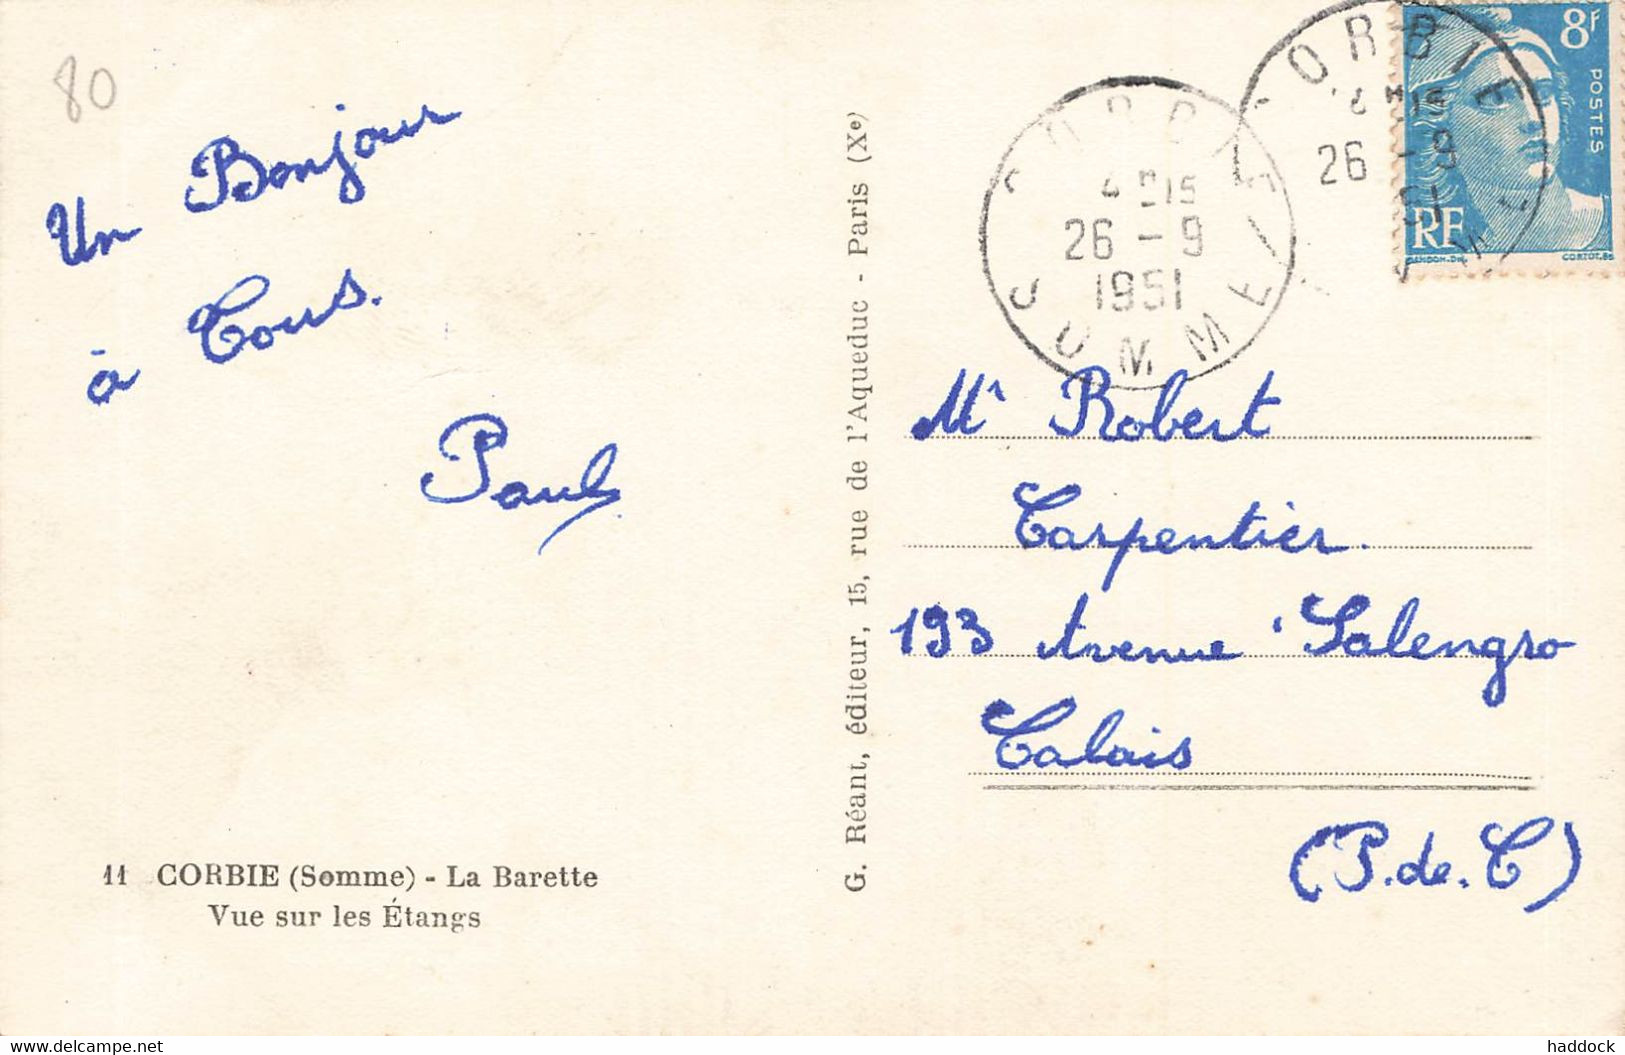 80
Un Bonjour
à Tous.
Paul
11 CORBIE (Somme) - La Barette
Vue sur les Étangs
G. Réant, éditeur, 15, rue de l'Aqueduc - Paris (Xe)
26 - 9
1951
SOMME
CORBIE
15
26 - 9
51
8f
POSTES
RF
GANDON.Del.
CORTOT.Sc
Mr Robert
Carpentier.
193 Avenue Salengro
Calais
(P.de.C)
delcampe.net
haddock